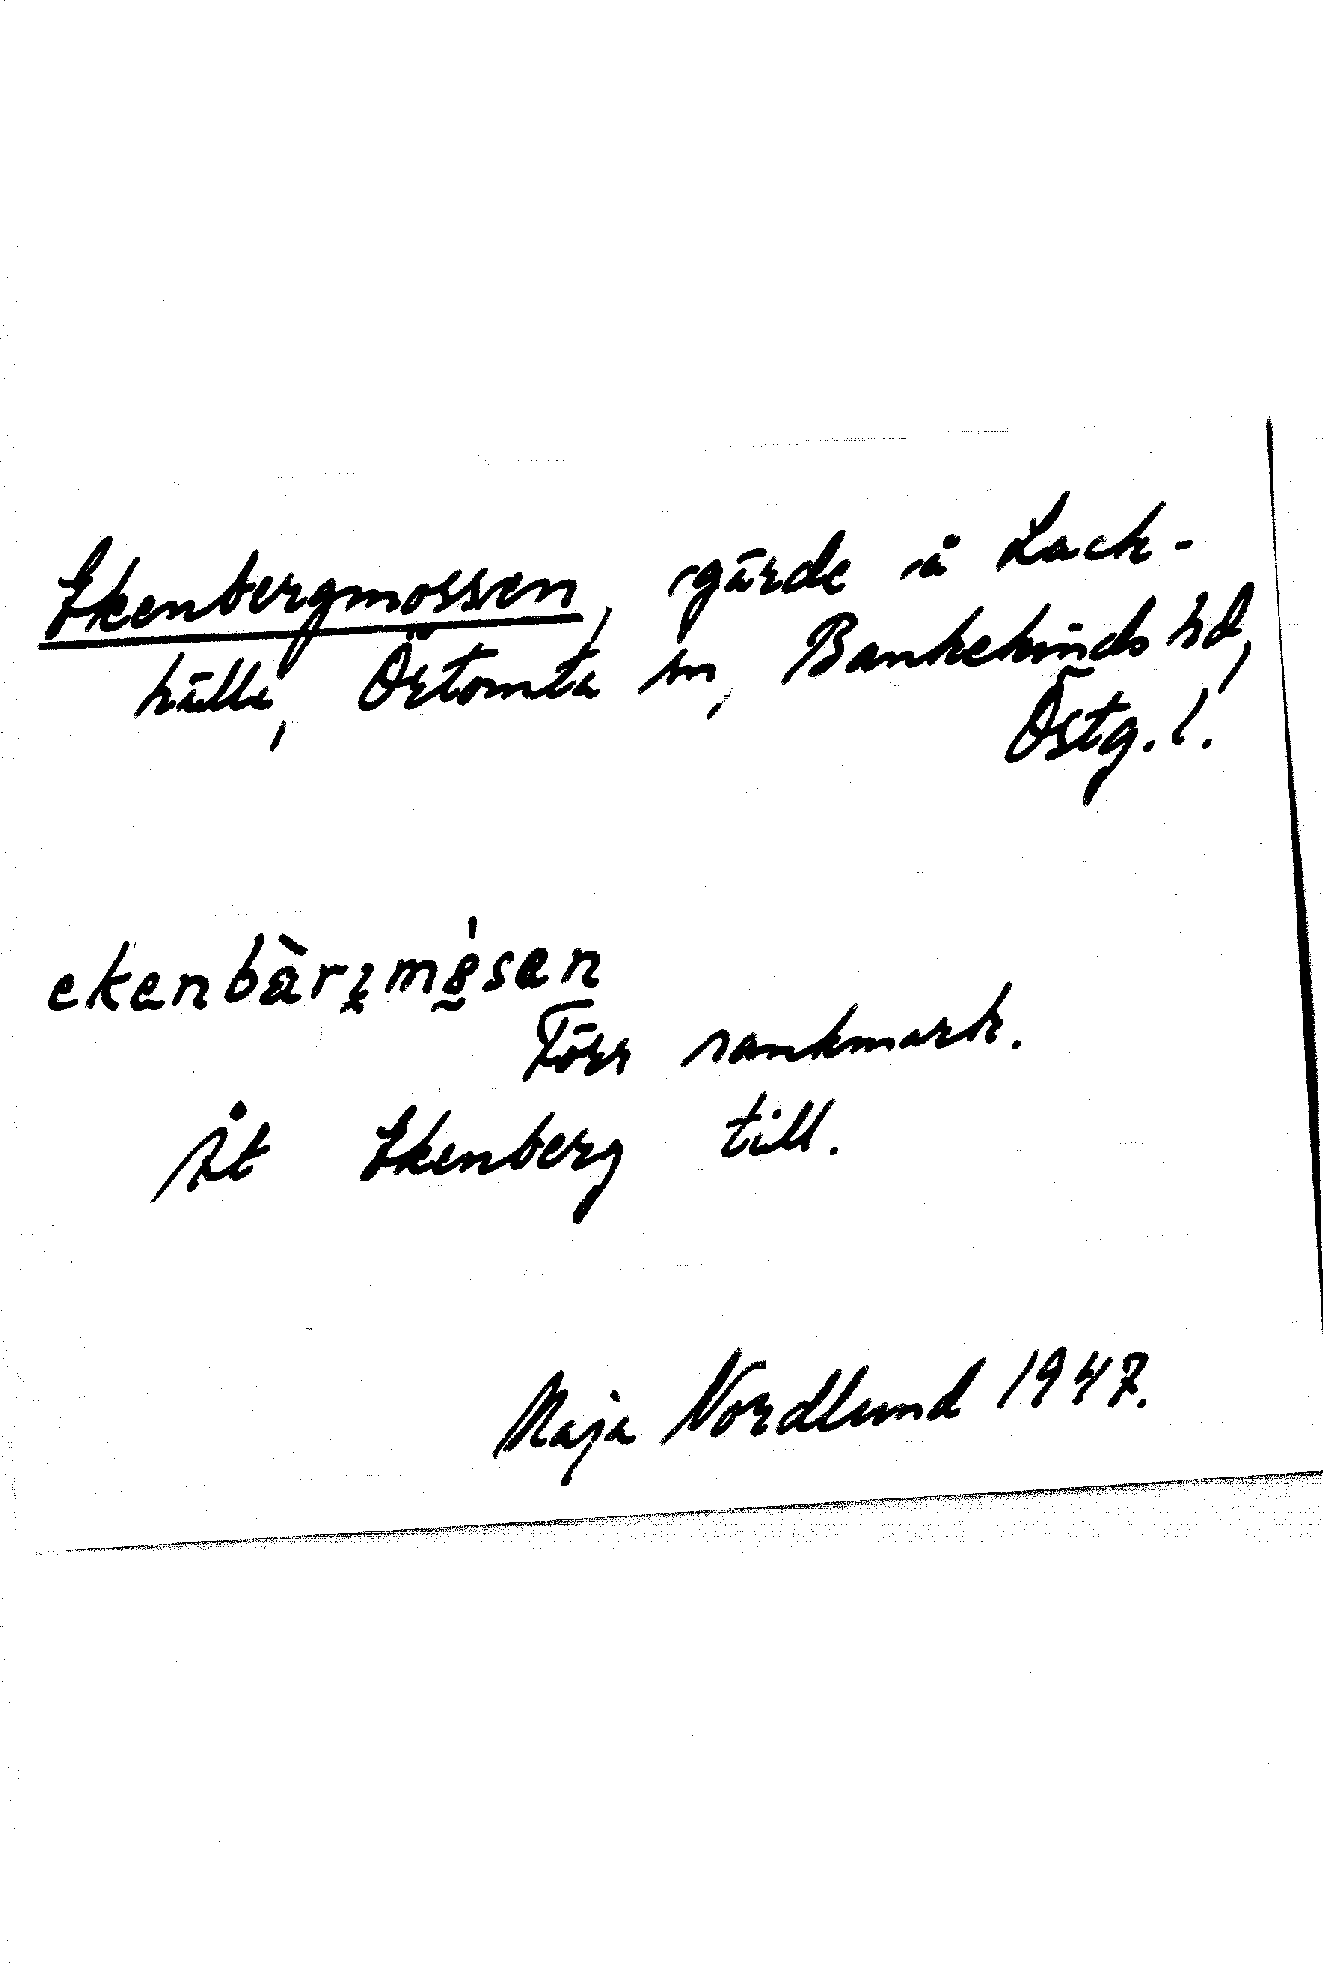 Ekenbergmossen, gärde å Lack-
hälla, Örtomta sn, Bankekinds hd,
Östg. l.
ekenbàrʒmɵ̀sen
Förr sankmark.
Åt Ekenberg till.
Maja Nordlund 1947.